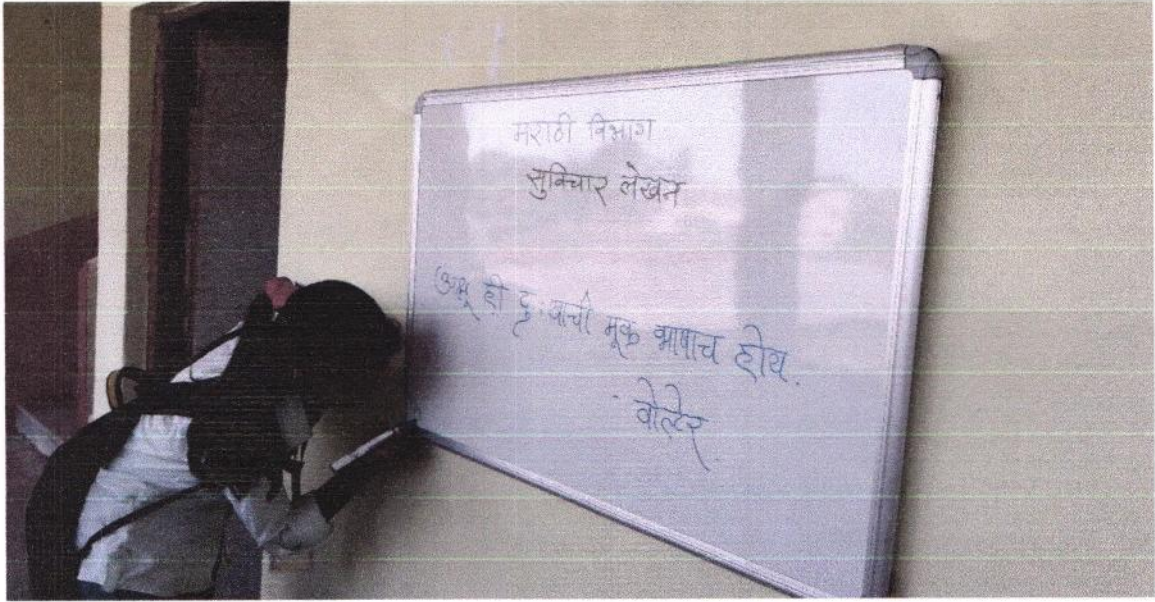 मराठी विभाग
सुविचार लेखन
अश्रू ही दु:खाची मूक भाषाच होय.
- वोल्टेर